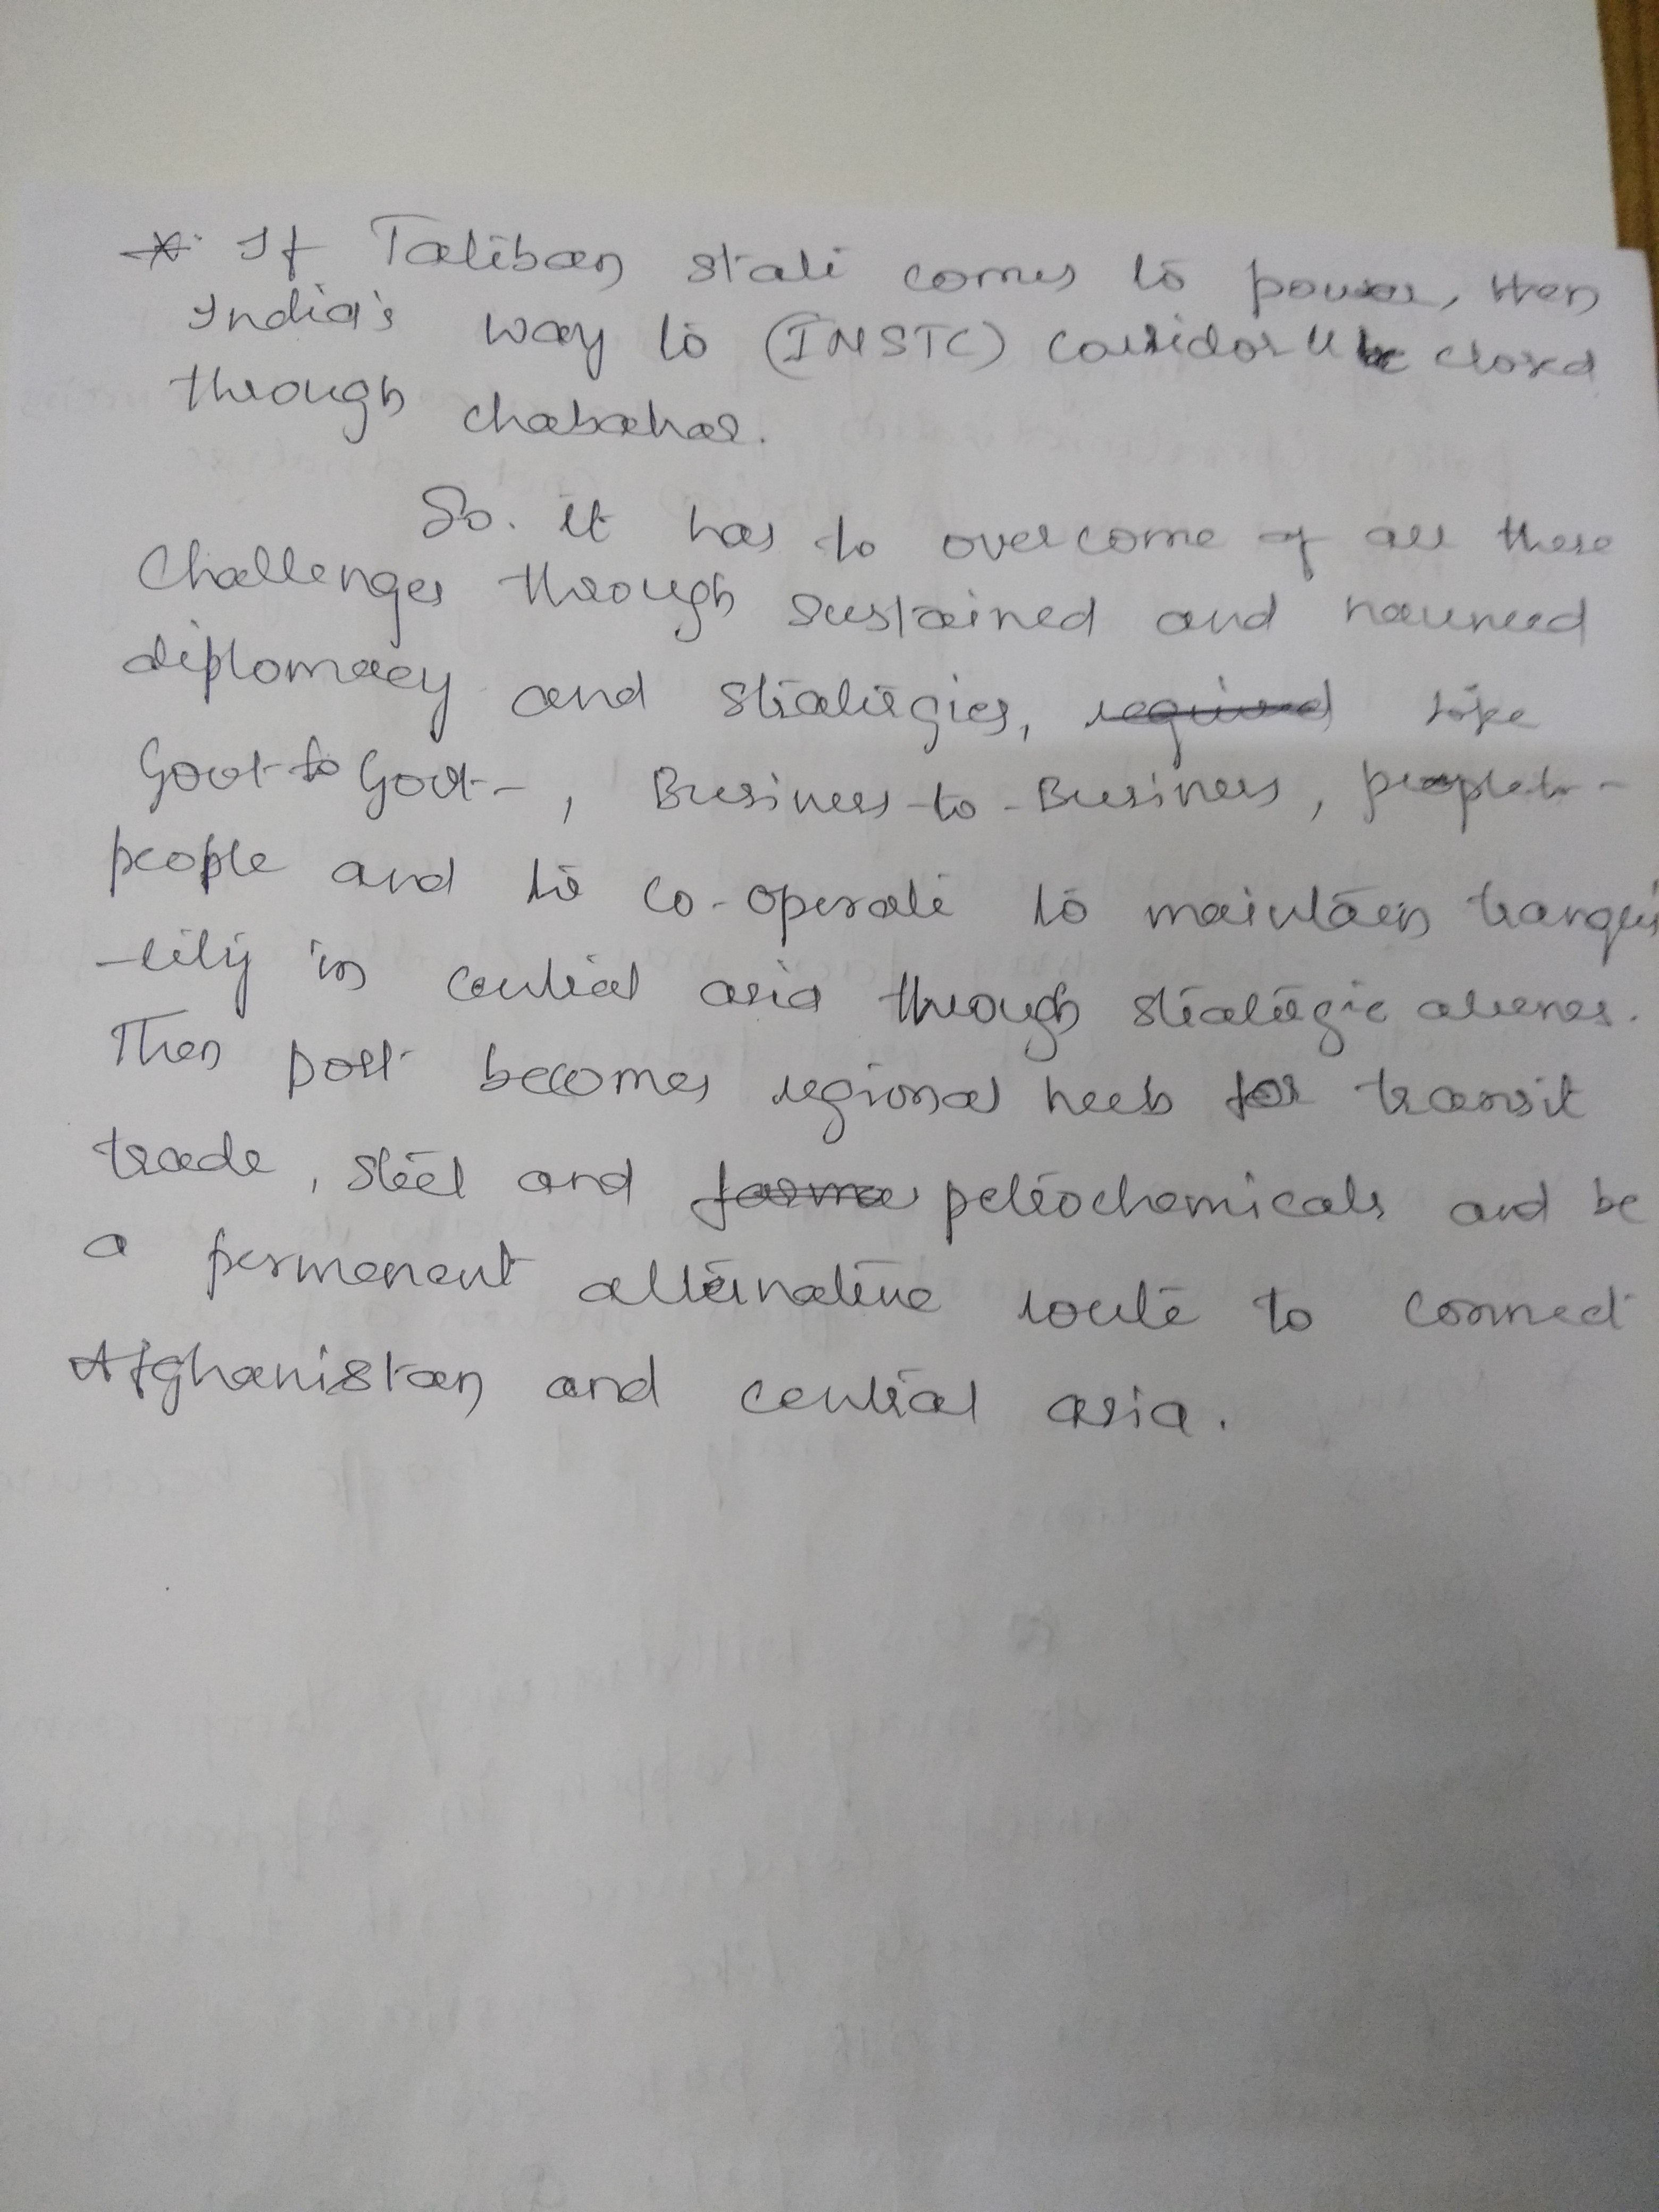 * If Taliban state comes to power, then
India's way to (INSTC) corridor 'll be closed
through chabahar.
So. it has to overcome of all these
Challenges through sustained and
diplomacy and strategies, required like
Govt-to Govt-, Business-to-Business, people-to-
people and to co-operate to maintain tranqui
-lity in central asia through strategic
Then port becomes regional hub for transit
trade, steel and petrochemicals and be
a permanent alternative route to connect
Afghanistan and central asia.